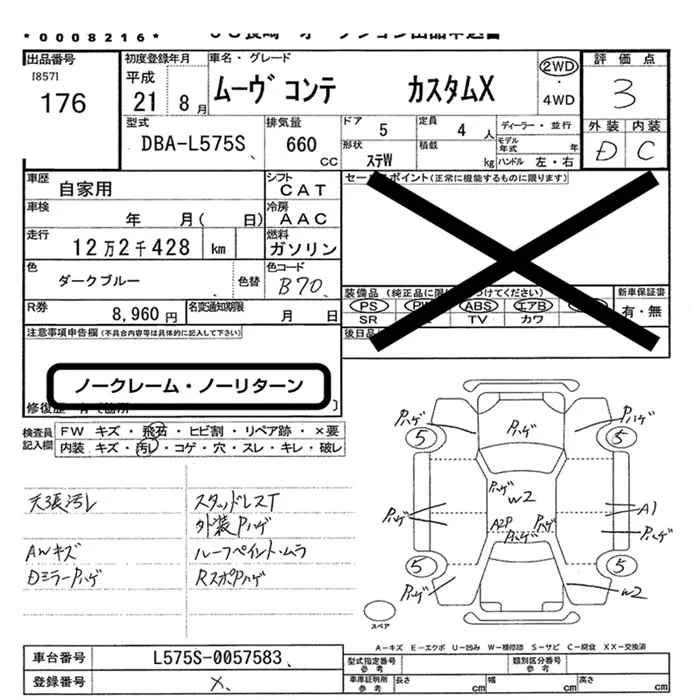 *0008216*
出品番号
[857]
176
初度登録年月
平成
21 8月
車名・グレード
ムーヴ コンテ カスタムX
2WD
・
4WD
評価点
3
外装 内装
D C
型式
DBA-L575S
排気量
660 CC
ドア 5
定員 4人
ディーラー・並行
形状 ステW
積載 kg
モデル年式 年
ハンドル 左・右
車歴
自家用
シフト
CAT
車検
年 月( 日)
冷房
AAC
走行
12万2千428 km
燃料
ガソリン
色
ダークブルー
色替
色コード
B70
R券
8,960円
名変通知期限
月 日
セールスポイント(正常に機能するものに限ります)
新車保証書
有・無
PS ABS エアB
SR TV カワ
注意事項申告欄(不具合内容等は具体的に記入して下さい)
ノークレーム・ノーリターン
検査員
記入欄
FW キズ・飛石・ヒビ割・リペア跡・×要
内装 キズ・汚レ・コゲ・穴・スレ・キレ・破レ
天張汚レ
スタッドレスT
外装Pハゲ
AWキズ
ルーフペイントムラ
DミラーPハゲ
RスポPハゲ
Pハゲ Pハゲ
5 Pハゲ 5
Pハゲ W2
Pハゲ A2P Pハゲ A1
Pハゲ Pハゲ
5 5
Pハゲ W2
スペア
A-キズ E-エクボ U-凹み W-補修跡 S-サビ C-腐食 XX-交換済
車台番号
L575S-0057583
登録番号
×
型式指定番号
参考
類別区分番号
参考
車庫証明用
参考
長さ cm 幅 cm 高さ cm